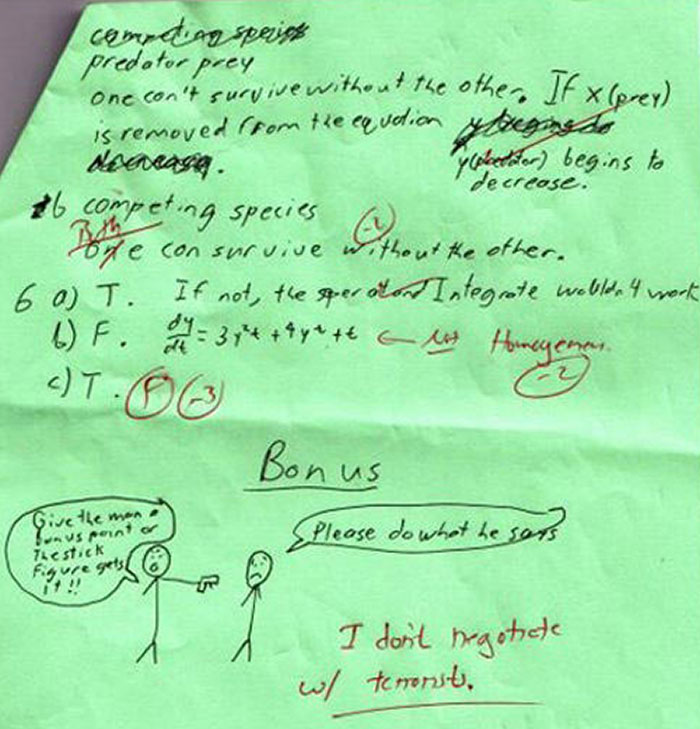 competing species
predator prey
one can't survive without the other. If x (prey)
is removed from the equation
decrease.
y(predator) begins to
decrease.
b competing species
Both
one can survive without the other.
-2
6 a) T. If not, the Integrate wouldn't work
b) F. dy/dt = 3y²t + 4y + t ← Not Homogeneous.
-2
c) T. F -3
Bonus
Give the man a
bonus point or
The stick
Figure gets
it!!
Please do what he says
I don't negotiate
w/ terrorists.